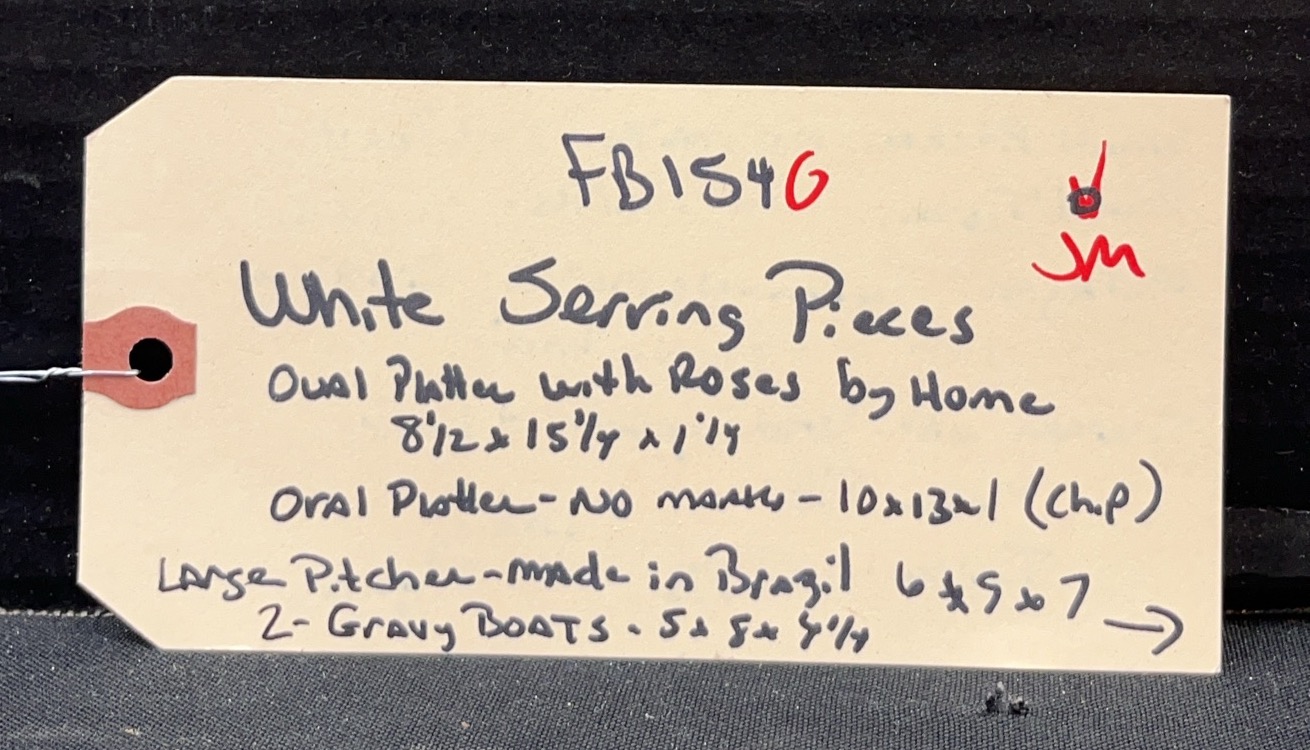 FB1546
JM
White Serving Pieces
Oval Platter with Roses by Home
8 1/2 x 15 1/4 x 1 1/4
Oval Platter - No marks - 10x13x1 (chip)
Large Pitcher - made in Brazil 6 x 9 x 7 →
2 - Gravy BOATS - 5 x 8 x 4 1/4